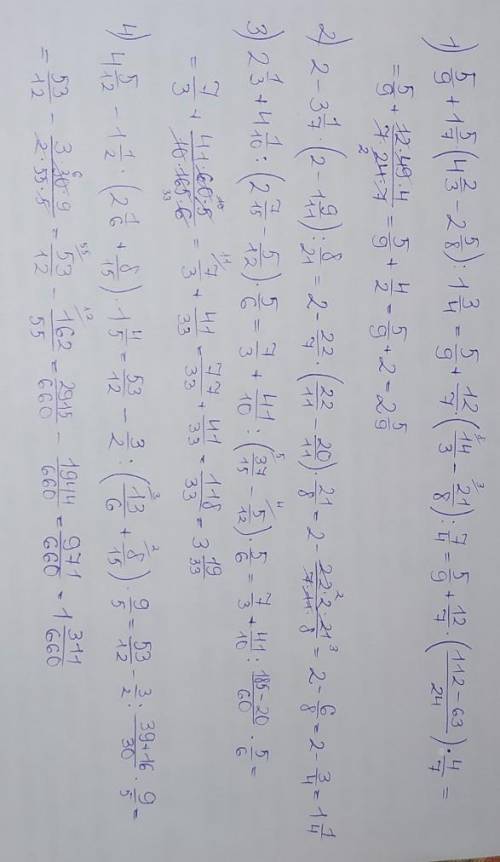 1) 5/9 + 1 5/7 · (4 2/3 - 2 5/8) : 1 3/4 = 5/9 + 12/7 · (14/3 - 21/8) : 7/4 = 5/9 + 12/7 · (112-63/24) · 4/7 =
= 5/9 + 12·49·4/7·24·7 = 5/9 + 4/2 = 5/9 + 2 = 2 5/9
2) 2 - 3 1/7 · (2 - 1 9/11) : 8/21 = 2 - 22/7 · (22/11 - 20/11) · 21/8 = 2 - 22·2·21/7·11·8 = 2 - 6/8 = 2 - 3/4 = 1 1/4
3) 2 1/3 + 4 1/10 : (2 7/15 - 5/12) · 5/6 = 7/3 + 41/10 : (37/15 - 5/12) · 5/6 = 7/3 + 41/10 : 185-20/60 · 5/6 =
= 7/3 + 41·60·5/10·165·6 = 7/3 + 41/33 = 77/33 + 41/33 = 118/33 = 3 19/33
4) 4 5/12 - 1 1/2 : (2 1/6 + 8/15) · 1 4/5 = 53/12 - 3/2 : (13/6 + 8/15) · 9/5 = 53/12 - 3/2 : 39+16/30 · 9/5 =
= 53/12 - 3·30·9/2·55·5 = 53/12 - 162/55 = 2915/660 - 1944/660 = 971/660 = 1 311/660